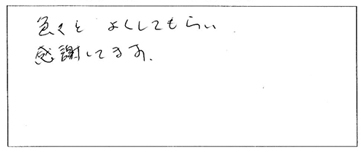 色々と よくしてもらい
感謝してます.